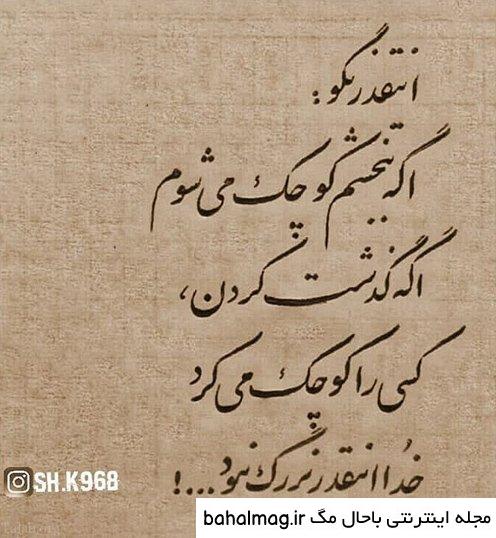 انقدر نگو :
اگه ببخشم کوچک می شوم
اگه گذشت کردن،
کسی را کوچک می کرد
خدا انقدر بزرگ نبود....!
SH.K968
مجله اینترنتی باحال مگ bahalmag.ir